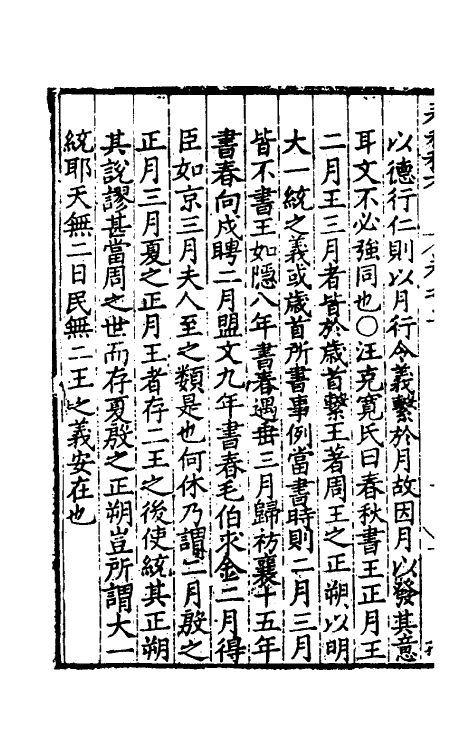 以德行仁則以月行令義繫於月故因月以發其意
耳文不必強同也〇汪克寬氏曰春秋書王正月王
二月王三月者皆於歲首繫王著周王之正朔以明
大一統之義或歲首所書事例當書時則二月三月
皆不書王如隱八年書春遇垂三月歸祊襄十五年
書春向戌聘二月盟文九年書春毛伯求金二月得
臣如京三月夫人至之類是也何休乃謂二月殷之
正月三月夏之正月王者存二王之後使統其正朔
其說謬甚當周之世而存夏殷之正朔豈所謂大一
統耶天無二日民無二王之義安在也